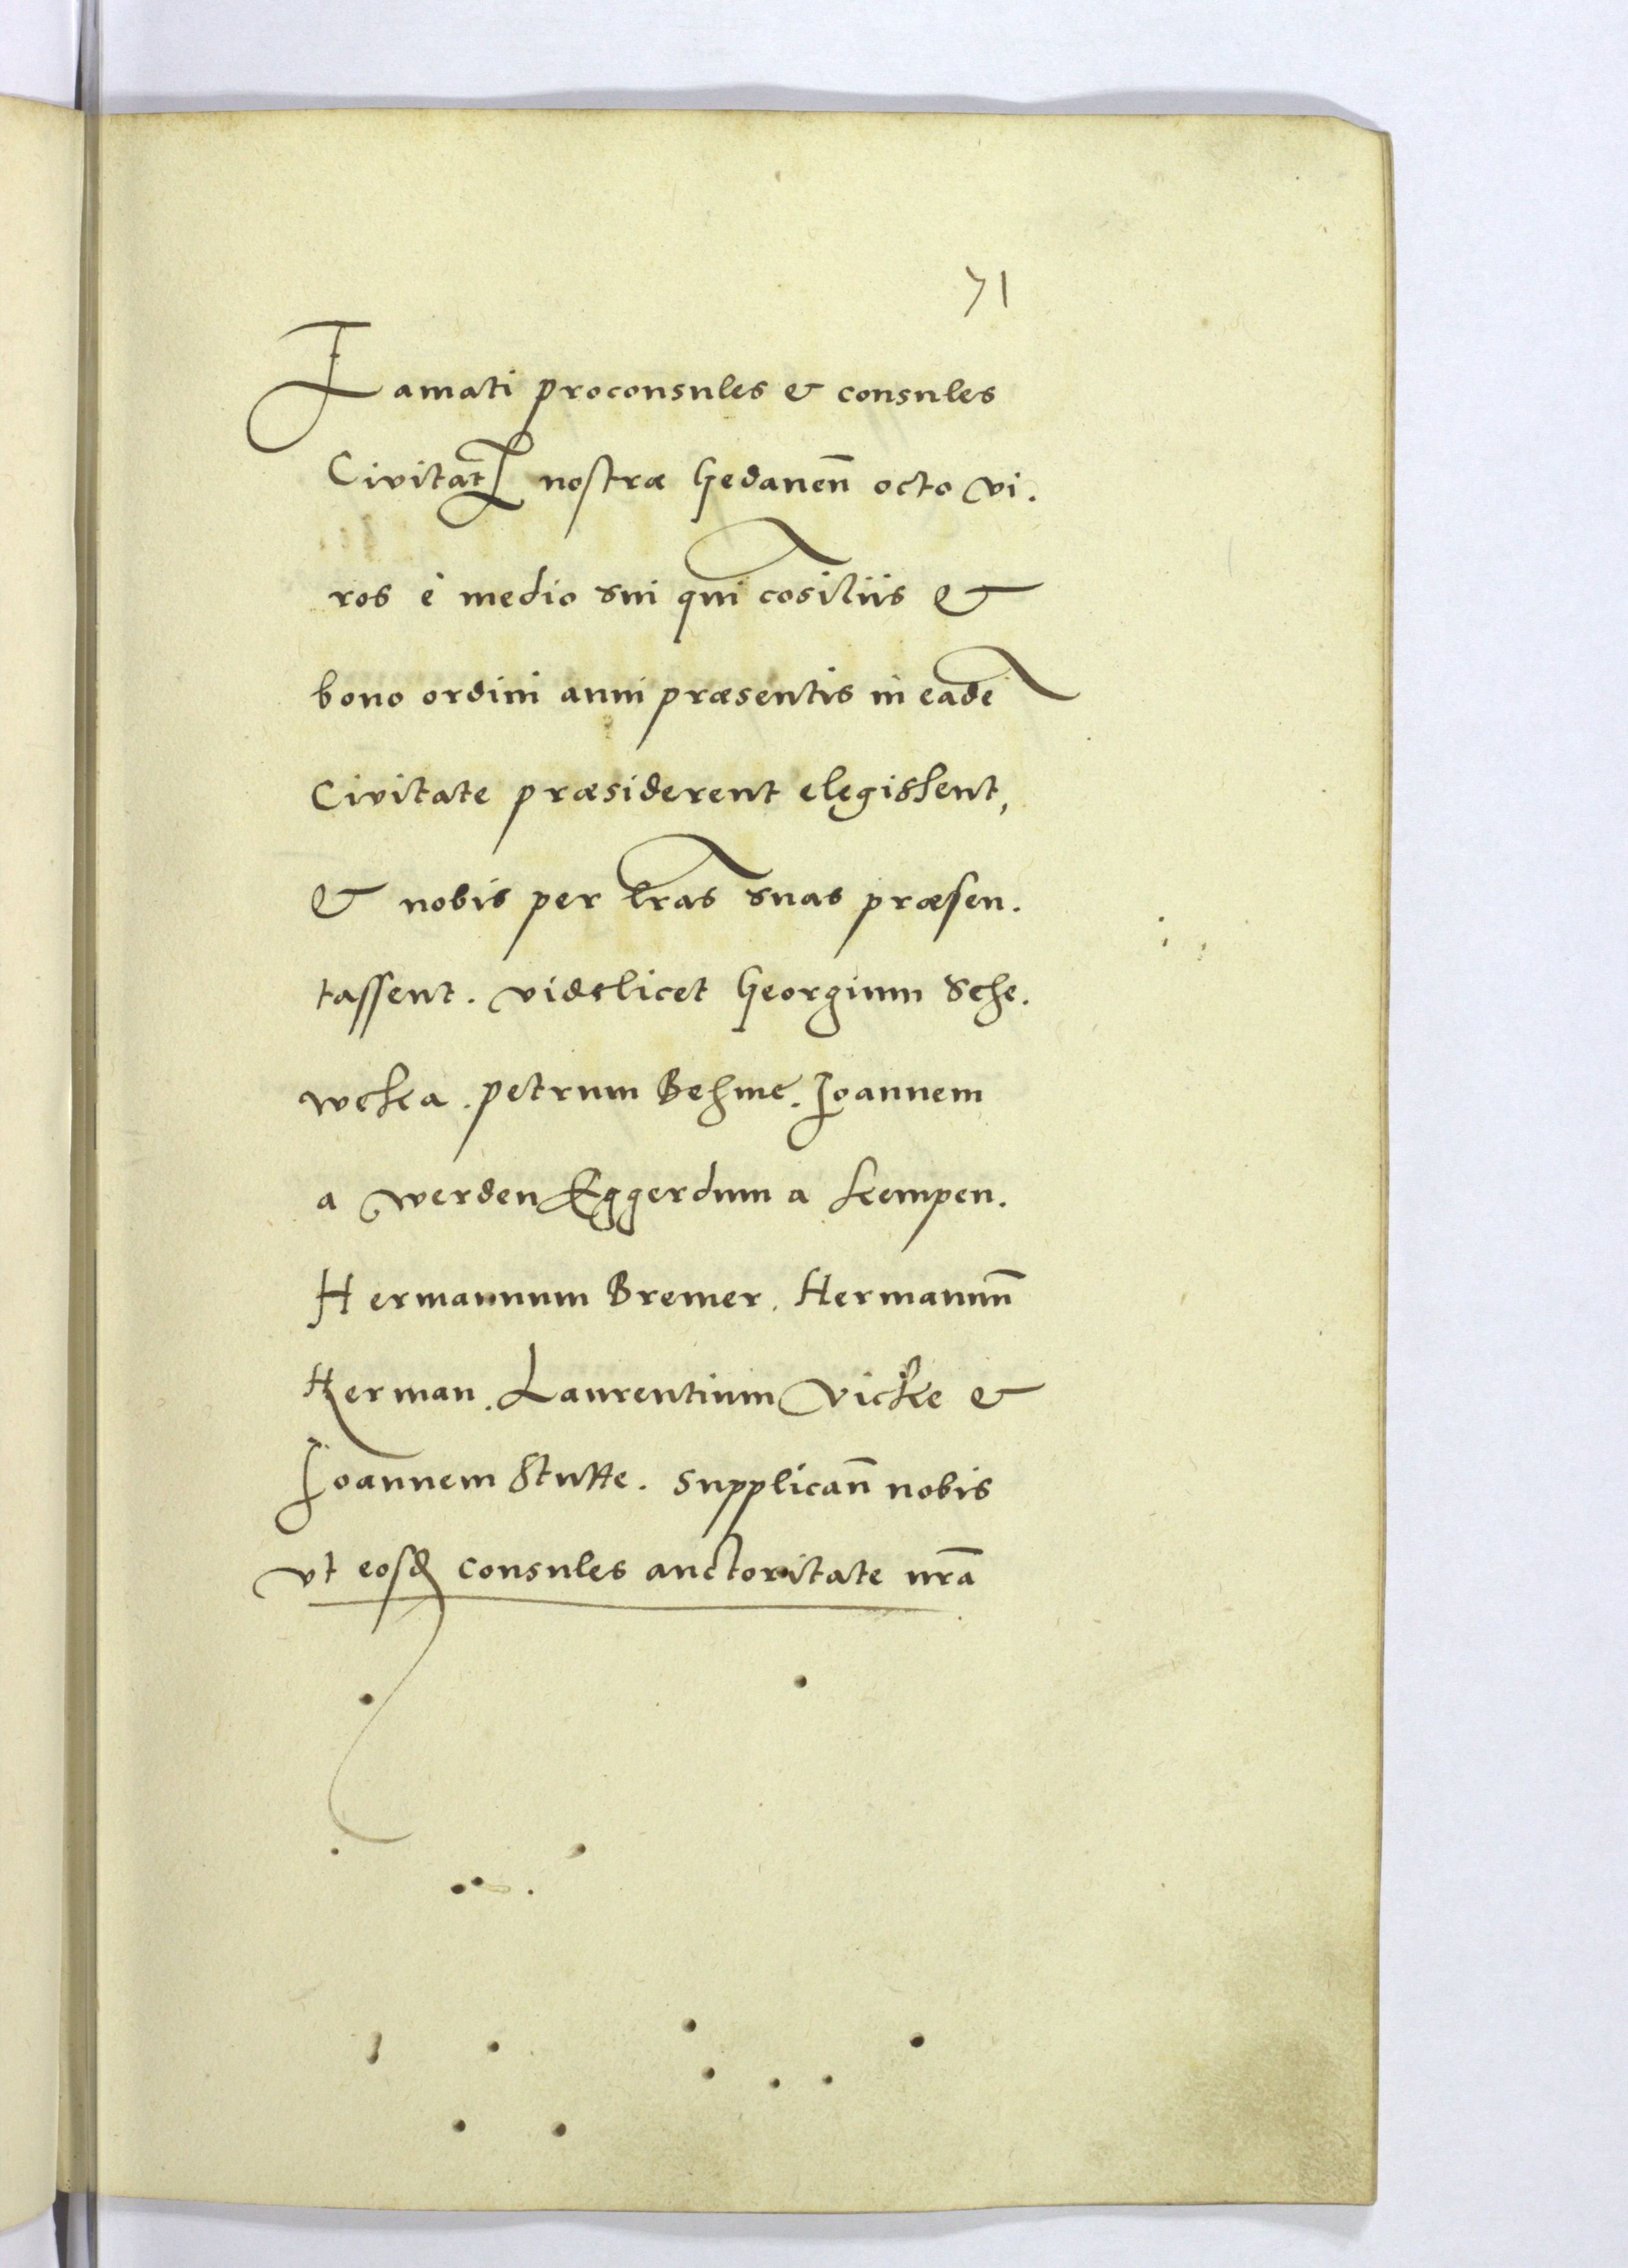 71
Famati proconsules & consules
Civitatꝭ nostræ Gedanen̄ octo vi.
ros è medio sui qui cōsiliis &
bono ordini anni præsentis in eadē
Civitate præsiderent elegissent,
& nobis per l̄ras suas præsen.
tassent. videlicet Georgium Sche.
weka. petrum Behme. Joannem
a werden Eggerdum a kempen.
Hermannum Bremer. Hermannū
Herman. Laurentium Vicke &
Joannem Stutte. supplican̄ nobis
vt eosd consules auctoritate nr̄a